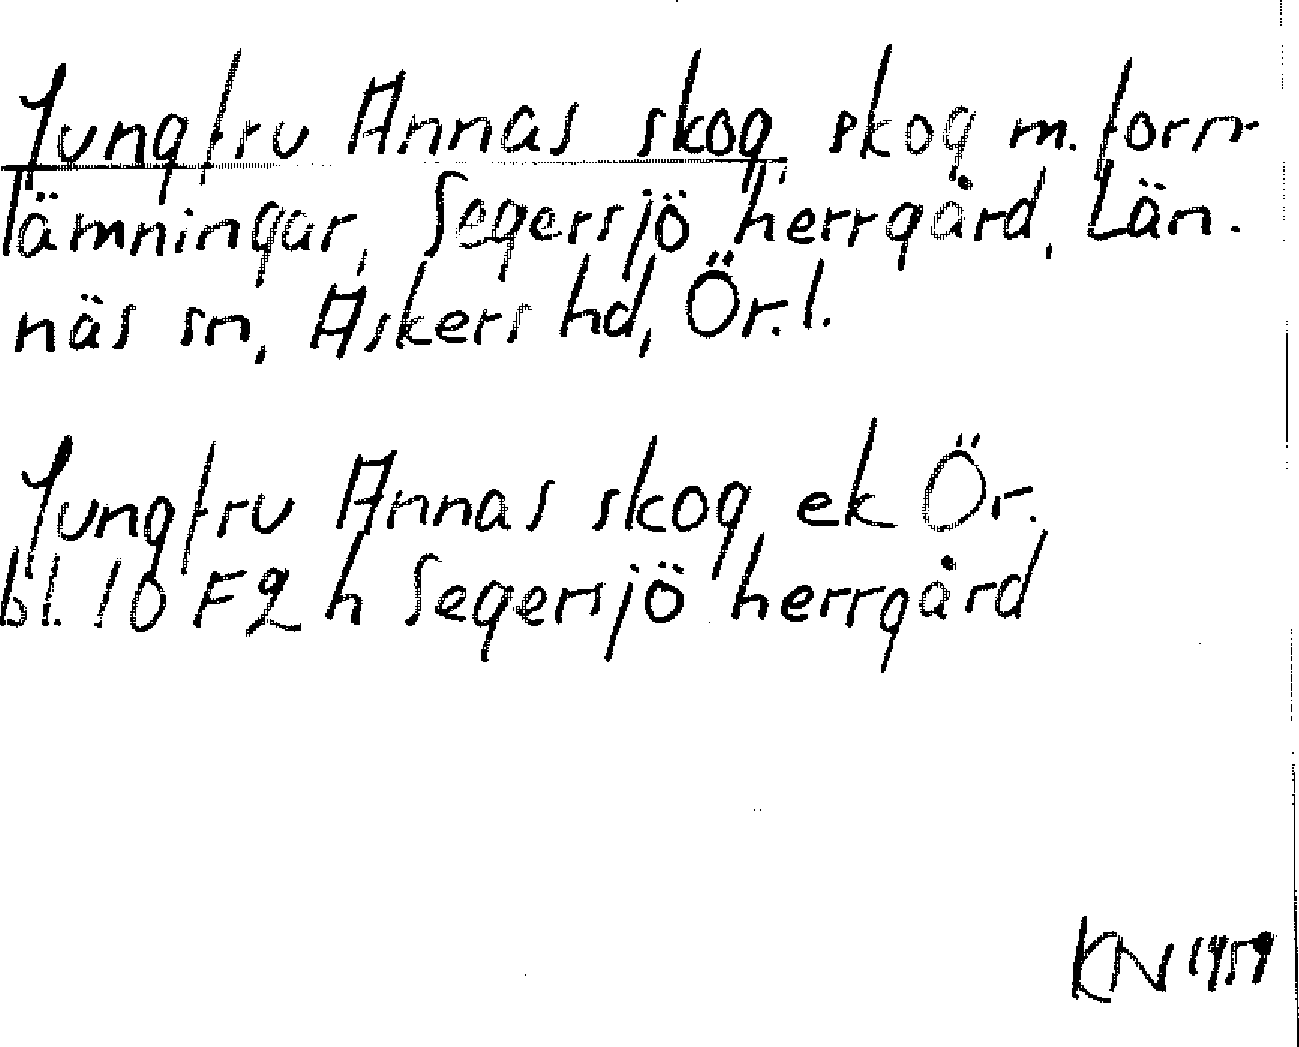 Jungfru Annas skog, skog m. forn-
lämningar, Segersjö herrgård, Län-
näs sn, Askers hd, Ör. l.
Jungfru Annas skog ek Ör.
bl. 10 F2 h Segersjö herrgård
KN 1959